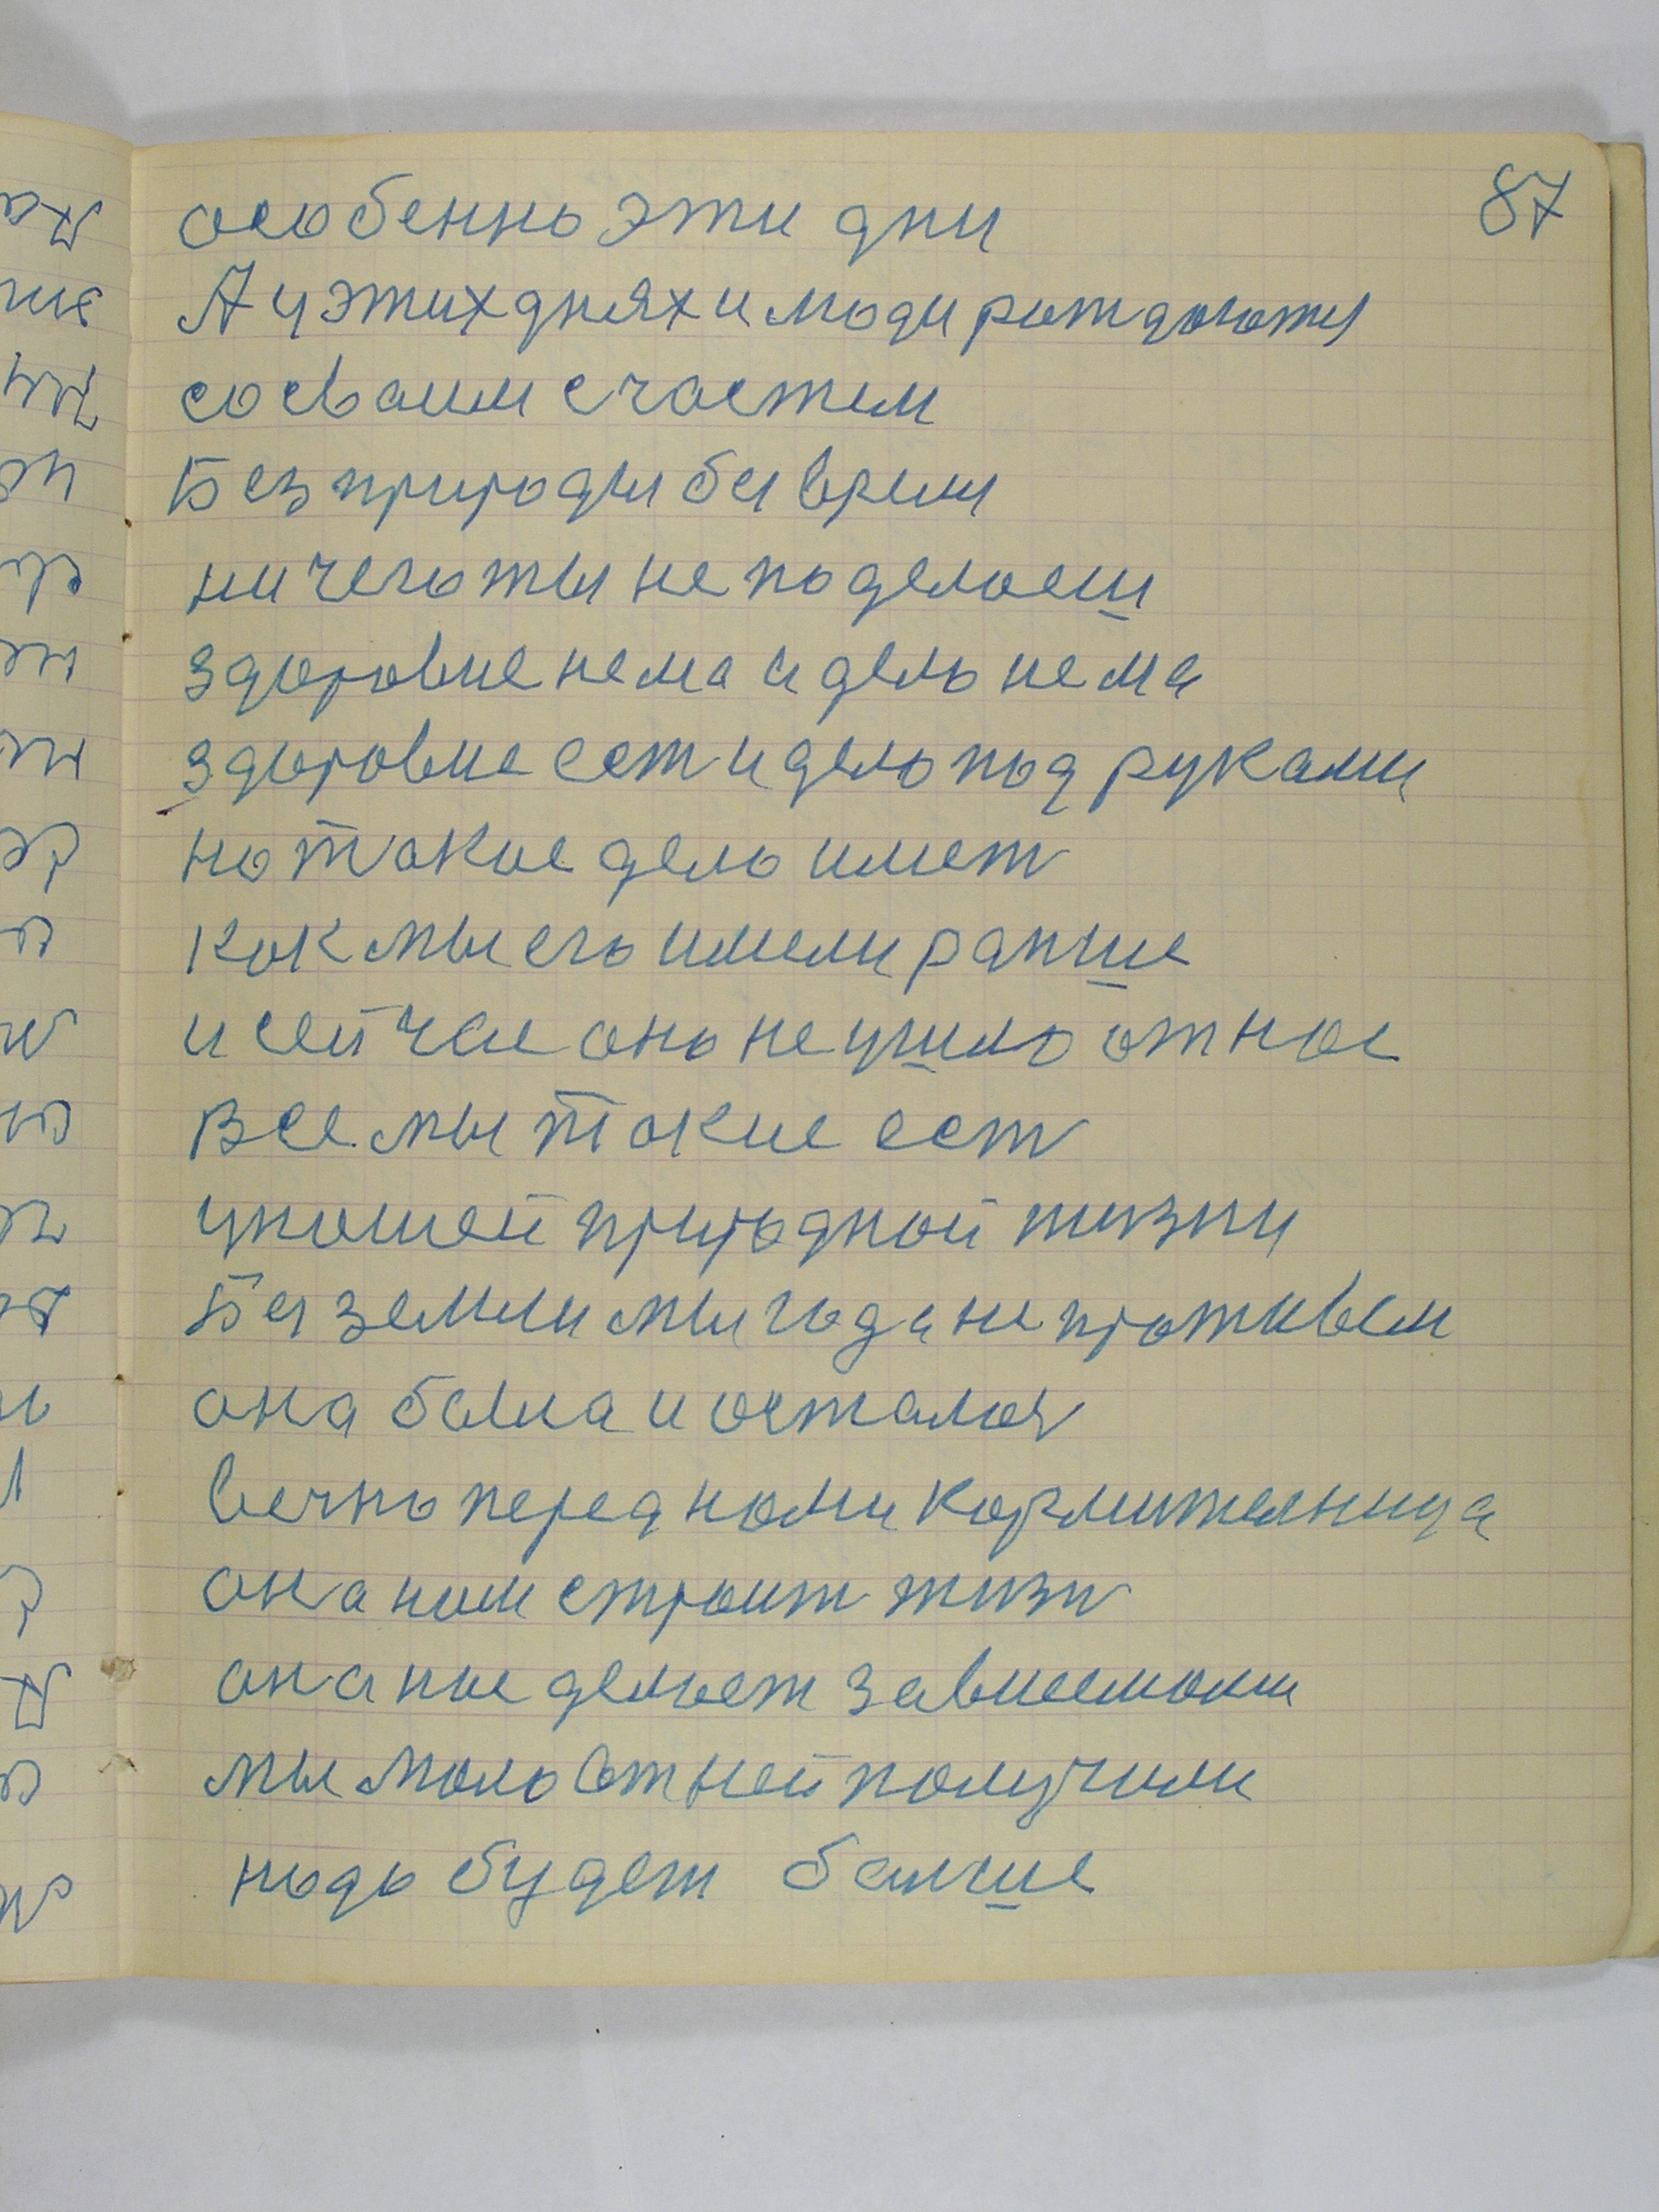 87
особенно эти дни
А у этих днях и люди рождаются
со сваим счастем
Без природы без врем
ничего ты не поделаеш
здоровие нема и дело нема
здоровие ест и дело под руками
но такое дело имет
как мы его имели ранше
и сейчас оно не ушло от нас
Все мы такие ест
у нашей природной жизни
Без земли мы года не проживем
она была и осталас
вечно перед нами кормителница
она нам строит жизн
она нас делает зависемыми
мы мало от ней получили
надо будет болше